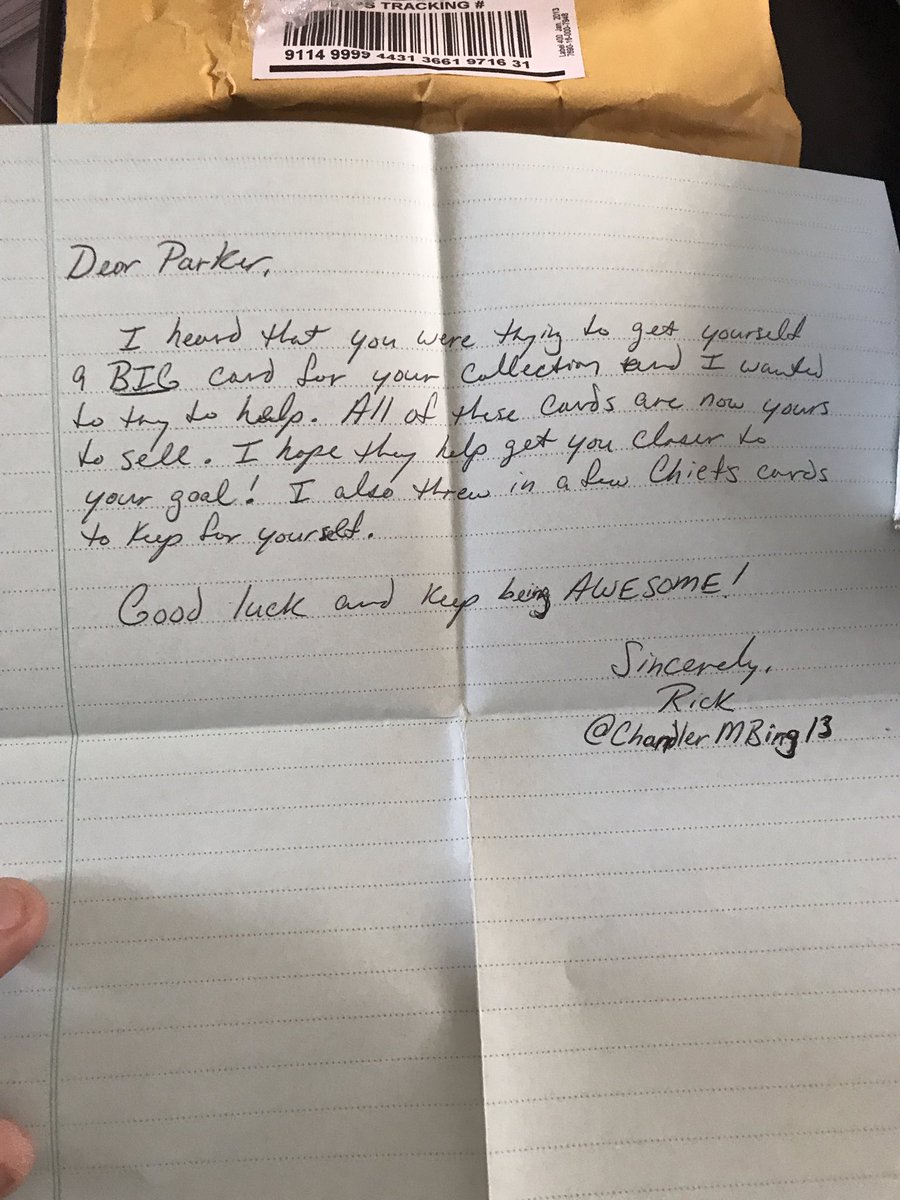 PS TRACKING #
9114 9999 4431 3661 9716 31
Label 400 Jan. 2013
7690-16-000-7948
Dear Parker,
I heard that you were trying to get yourself
a BIG card for your collection and I wanted
to try to help. All of these cards are now yours
to sell. I hope they help get you closer to
your goal! I also threw in a few Chiefs cards
to keep for yourself.
Good luck and keep being AWESOME!
Sincerely,
Rick
@ChandlerMBing13